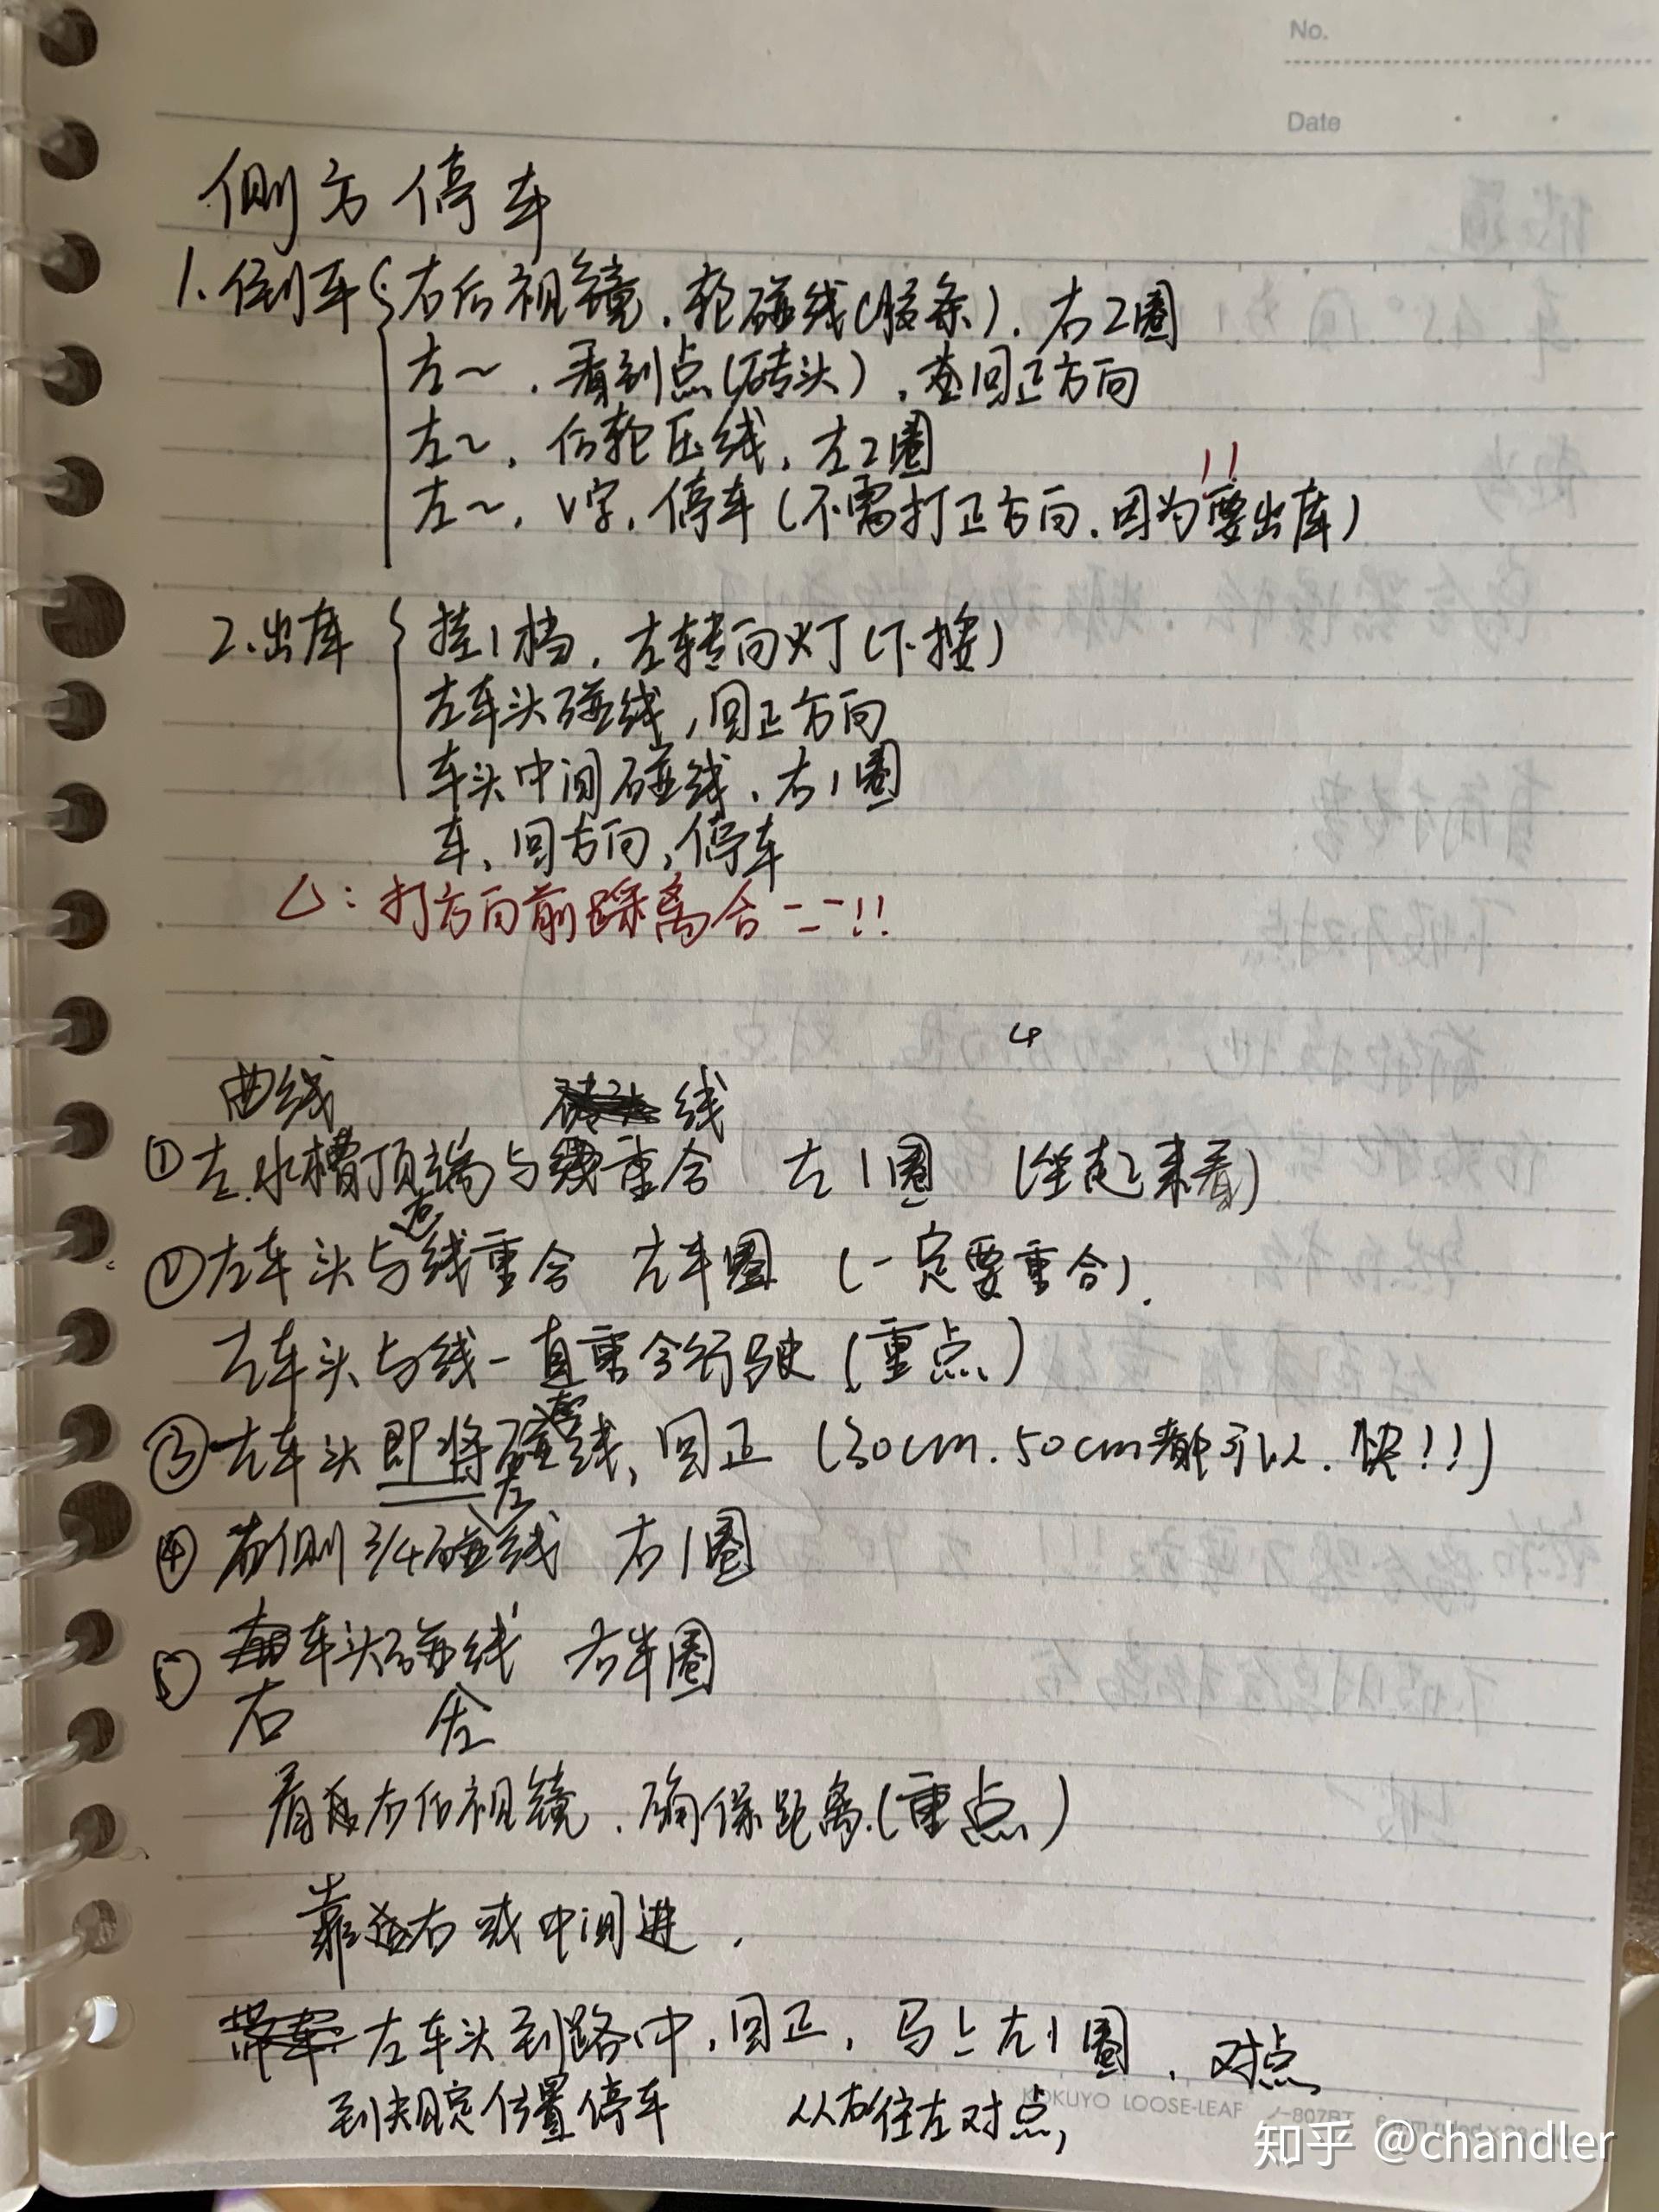 No.
Date
侧方停车
1.倒车{右后视镜.轮碰线(胶条).右2圈
左~.看到点(砖头),回正方向
左~,后轮压线,左2圈
左~,V字,停车(不需打正方向.因为要出库)!!
2.出库{挂1档,左转向灯(下按)
左车头碰线,回正方向
车头中间碰线.右1圈
车,回方向,停车
△:打方向前踩离合---!!
4
曲线
线
①左.水槽顶端与线重合 左1圈 (坐起来看)
②左车头与右线重合 左半圈 (一定要重合).
左车头与线一直重合行驶(重点)
③左车头即将碰线,回正(30cm.50cm都可以.快!!!)
④右侧3/4碰左线 右1圈
⑤车头碰线 右半圈
右 左
看右后视镜.确保距离(重点)
靠右或中间进.
左车头到路中,回正,马上左1圈.对点
到规定位置停车 从右往左对点
KOKUYO LOOSE-LEAF
知乎 @chandler